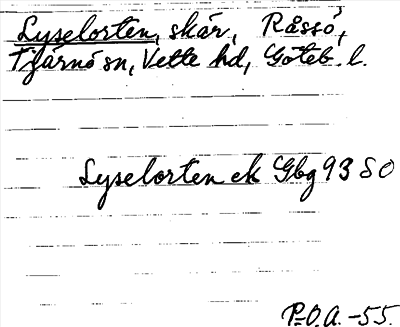 Lyselorten, skär, Råssö,
Tjärnö sn, Vette hd, Göteb. l.
Lyselorten ek Gbg 93 SO
P-O.A. -55.